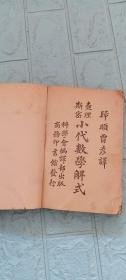 歸順曾彥譯
查理
斯密 小代數學解式
科學會編譯部出版
商務印書館發行